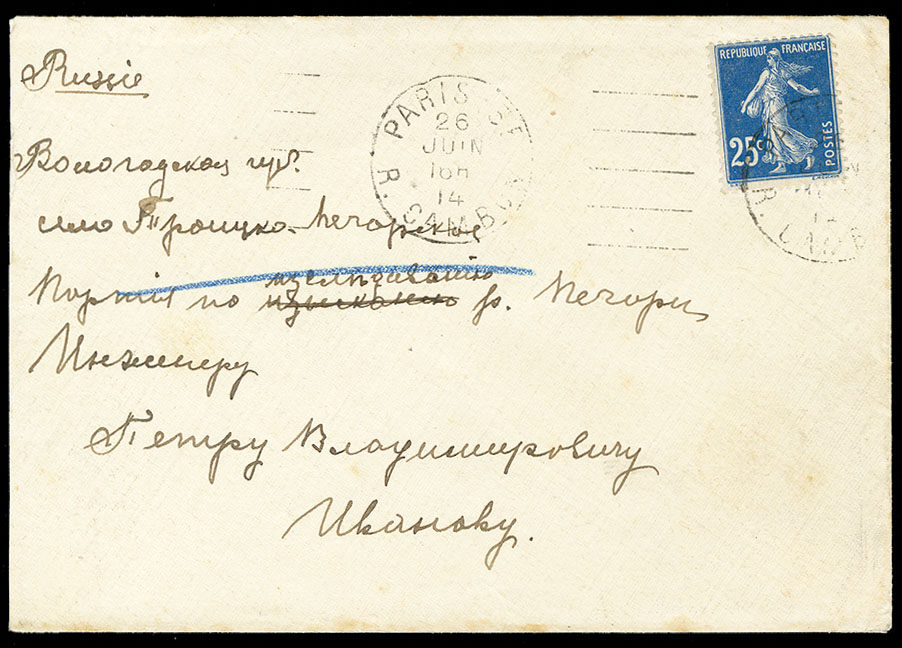 Russie
Вологодская губ.
село Троицко-Печорское
изслѣдованію
Партія по изысканію р. Печоры
Инженеру
Петру Владимировичу
Иванову.
PARIS
26
JUIN
16H
14
R. CAMBON
REPUBLIQUE FRANÇAISE
25c
POSTES